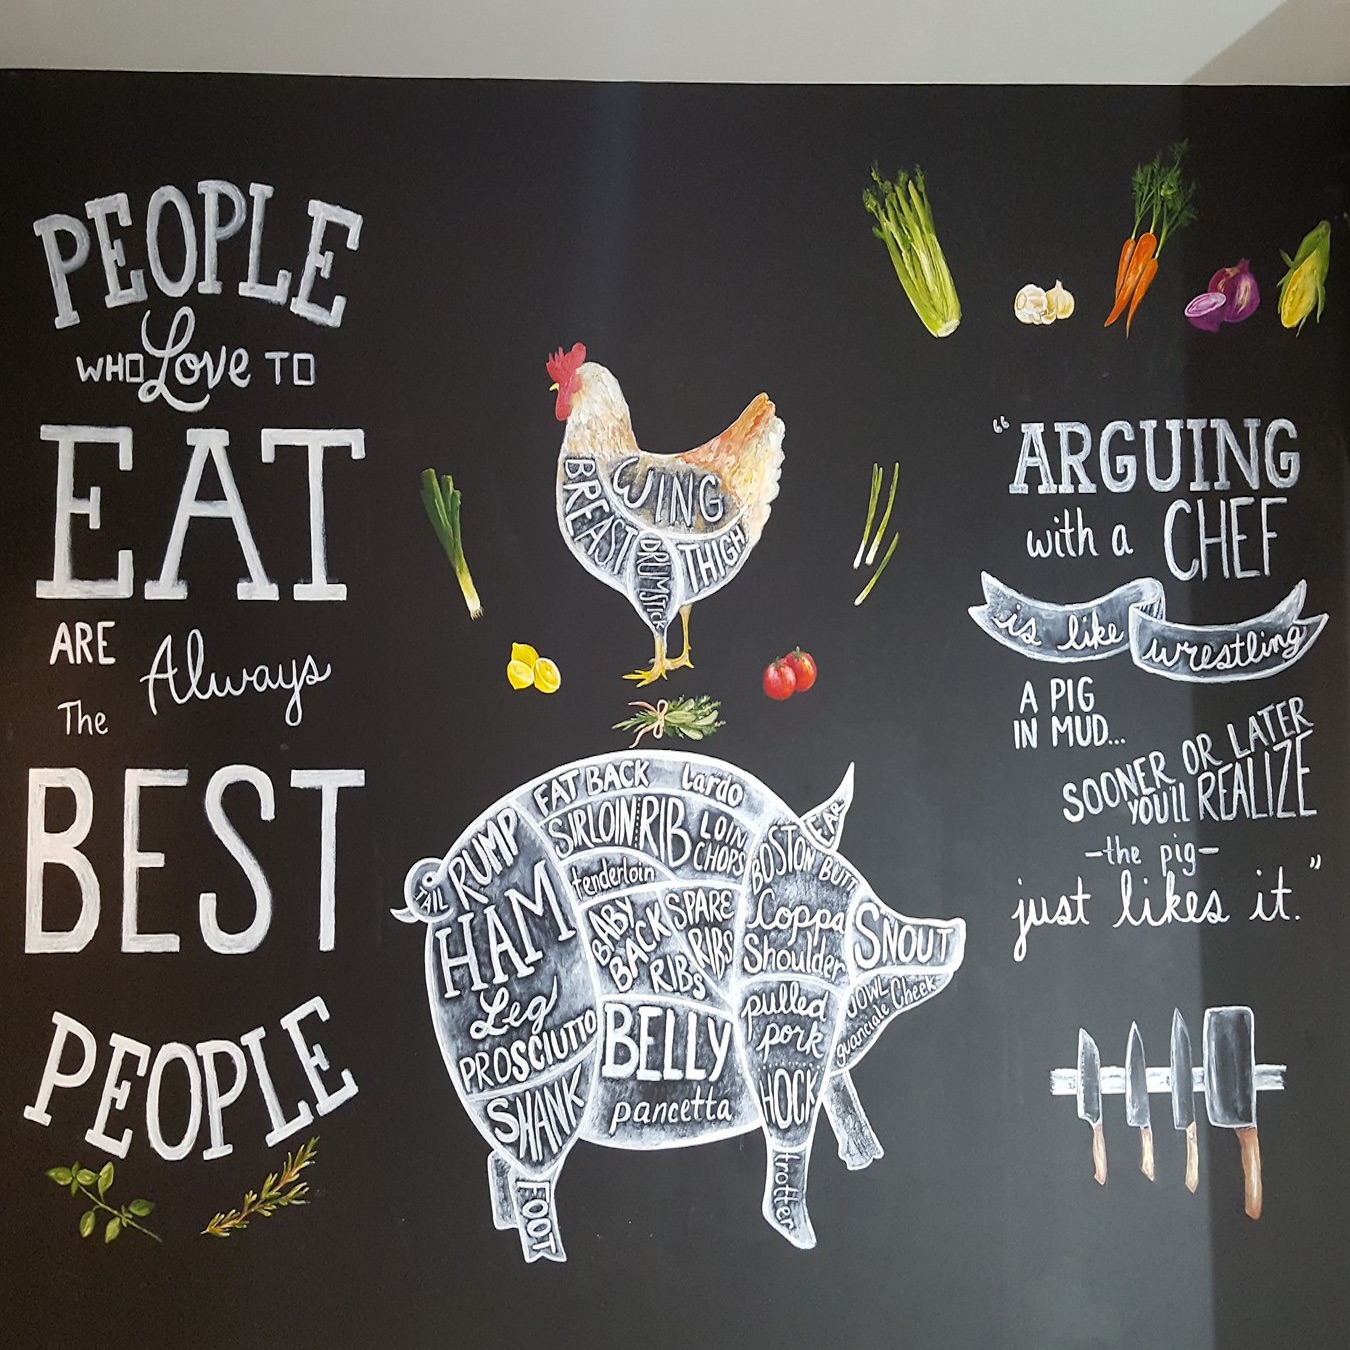 PEOPLE
WHO Love TO
EAT
ARE Always
The
BEST
PEOPLE
WING
BREAST
DRUMSTICK
THIGH
FAT BACK Lardo
SIRLOIN RIB LOIN
CHOPS
tenderloin
RUMP
TAIL
HAM
Leg
PROSCIUTTO
SHANK
FOOT
BABY
BACK
RIBS
SPARE
RIBS
BELLY
pancetta
EAR
BOSTON BUTT
Coppa
Shoulder
pulled
pork
HOCK
trotter
SNOUT
JOWL
guanciale Cheek
“ARGUING
with a CHEF
is like wrestling
A PIG
IN MUD...
SOONER OR LATER
YOU'll REALIZE
-the pig-
just likes it.”